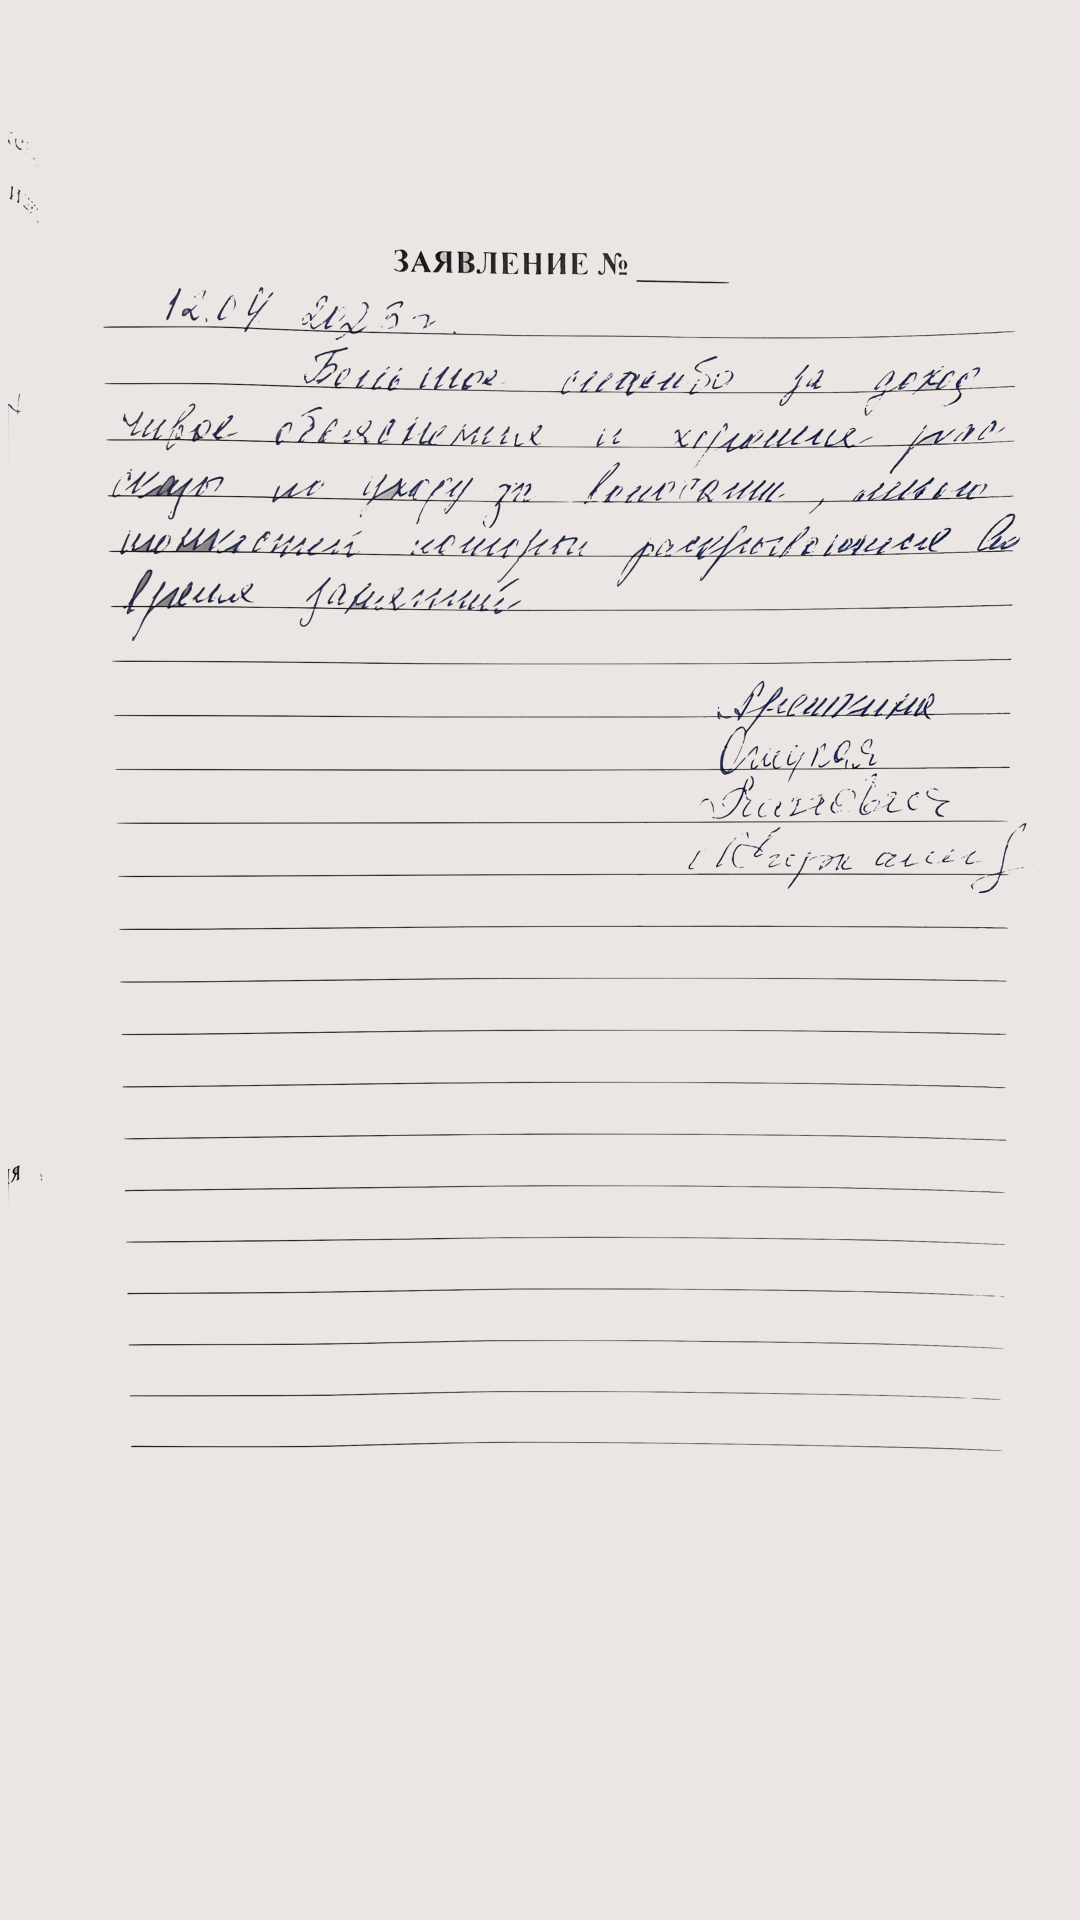 ЗАЯВЛЕНИЕ №
12.04 2023 г.
Большое спасибо за доход
чивое объяснение и хорошие рас-
сказы по уходу за волосами, много
тонкостей которые раскрываются во
время занятий
Арешкина